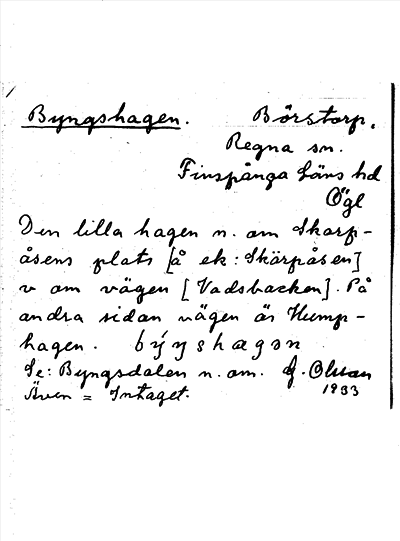 Byngshagen. Börstorp.
Regna sn.
Finspånga läns hd
Ögl
Den lilla hagen n. om Skarp-
åsens plats [å ek: Skärpåsen]
v om vägen [Vadsbacken]. På
andra sidan vägen är Hump-
hagen. býŋshagən
Se: Byngsdalen n. om. G. Olsson
Även = Intaget. 1933